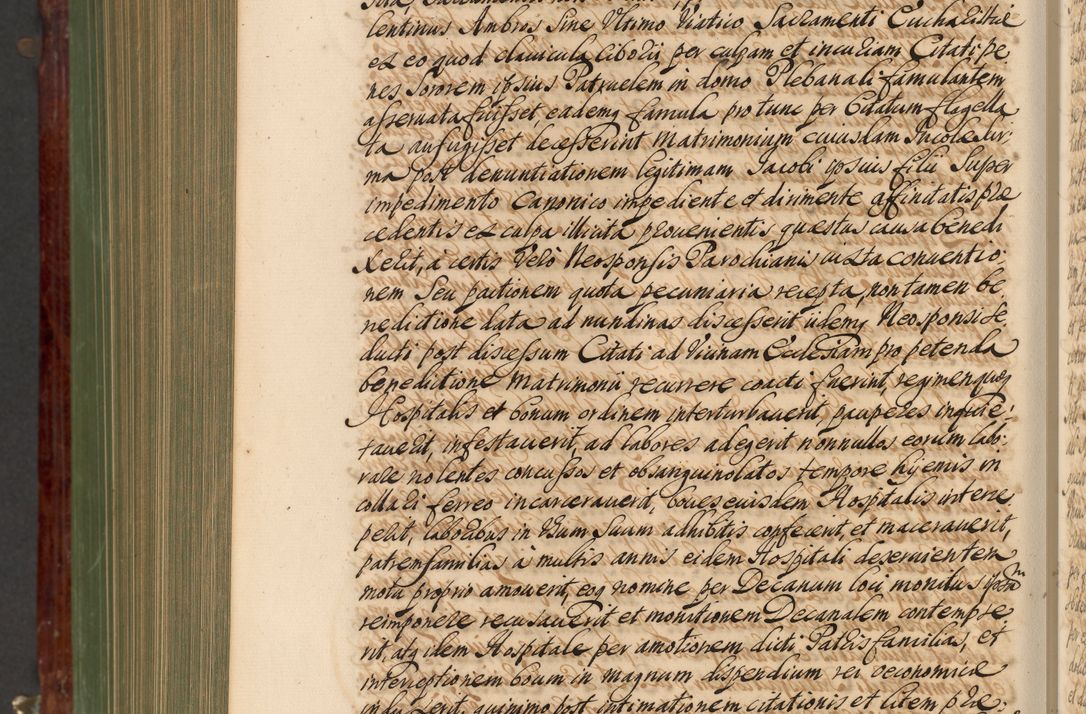 lentinus Ambros Sine Ultimo Viatico Sacramenti Eucharistiæ
ex eo quod clavicula Ciborii per culpam et incuriam Citati pe
nes Sororem ipsius Patruelem in domo Plebanali famulantem
asservata fuisset eademq famula pro tunc per Citatum flagella
ta aufugisset decesserint Matrimonium cujusdam Incolæ
ma post denuntiationem legitimam Jacobi ipsius filii Super
impedimento Canonico impediente et dirimente affinitatis præ
cedentis ex culpa illicita provenientis quæstus causa benedi
xerit, à certis Verò Neosponsis Parochianis iuxta conventio:
nem Seu pactionem quota pecuniaria recepta, non tamen be
nedictione data ad nundinas discesserit iidemq Neosponsi Se
ducti post discessum Citati ad Vicinam Ecclesiam pro petenda
benedictione Matrimonii recurrere coacti fuerint, regimenquæ
Hospitalis et bonum ordinem interturbaverit, pauperes inquie:
taverit, infestaverit, ad labores adegerit nonnullos eorum labo:
rare nolentes concussos et obsanguinolatos tempore hyemis in
collari ferreo incarceraverit, boves eiusdem Hospitalis interce
perit, laboribus in Usum Suum adhibitis confecerit, et maceraverit,
patremfamilias à multis annis eidem Hospitali deservientem
motu proprio amoverit, eoq nomine per Decanum loci monitus ipsum
reimponere recusaverit et monitionem Decanalem contempse
rit, atq idem Hospitale per amotionem dicti Patris familias, et
interceptionem boum in magnum dispendium rei oeconomicæ
induxerit, quinimo post intimationem citationis et litem præ: